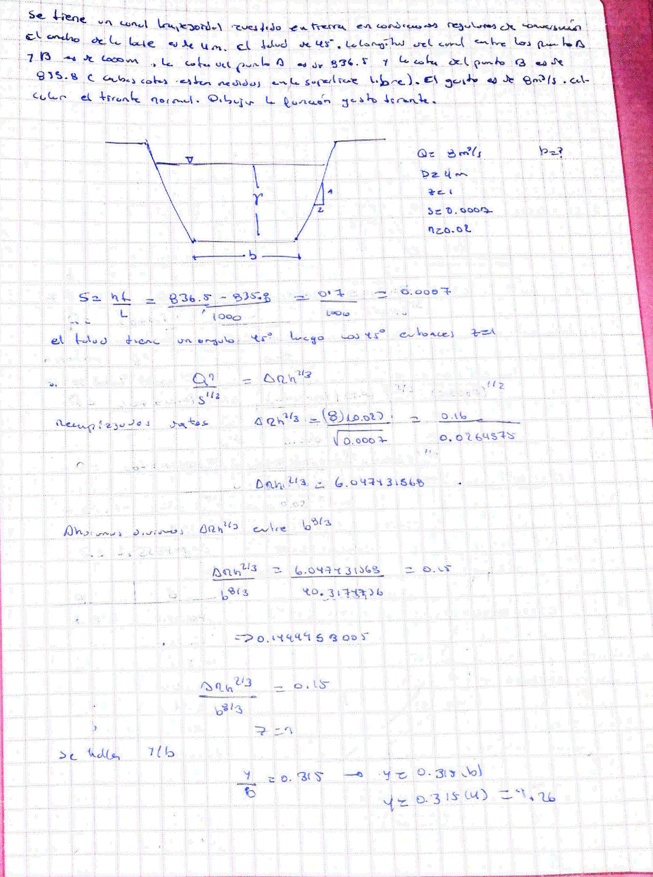 Se tiene un canal trapezoidal revestido en tierra en condiciones regulares de conservación
El ancho de la base es de 4m. El talud de 45°. la longitud del canal entre los punto A
y B es de 1000m, la cota del punto A es de 836.5 y la cota del punto B es de
835.8 (ambas cotas estan medidas en la superficie libre). El gasto es de 8m³/s. cal-
cular el tirante normal. Dibujar la función gasto tirante.
Q= 8m³/s b=?
b= 4m
z=1
s=0.0007
n=0.02
Y
1
z
b
S= hf/L = 836.5 - 835.8/1000 = 0.7/1000 = 0.0007
el talud tiene un angulo 45° luego cos 45° entonces z=1
Qn/S^1/2 = ARh^2/3
Remplazados datos ARh^2/3 = (8)(0.02)/√0.0007 = 0.16/0.0264575
ARh^2/3 = 6.047431568
dividimos ARh^2/3 entre b^8/3
ARh^2/3/b^8/3 = 6.047431568/40.3174736 = 0.15
=>0.1499953005
ARh^2/3/b^8/3 = 0.15
z=1
se halla y/b
y/b = 0.315 → y= 0.315(b)
y= 0.315(4) = 1.26